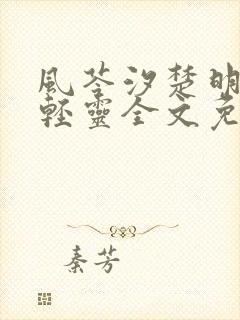 風苓汐楚明
輕靈全文免
秦芳